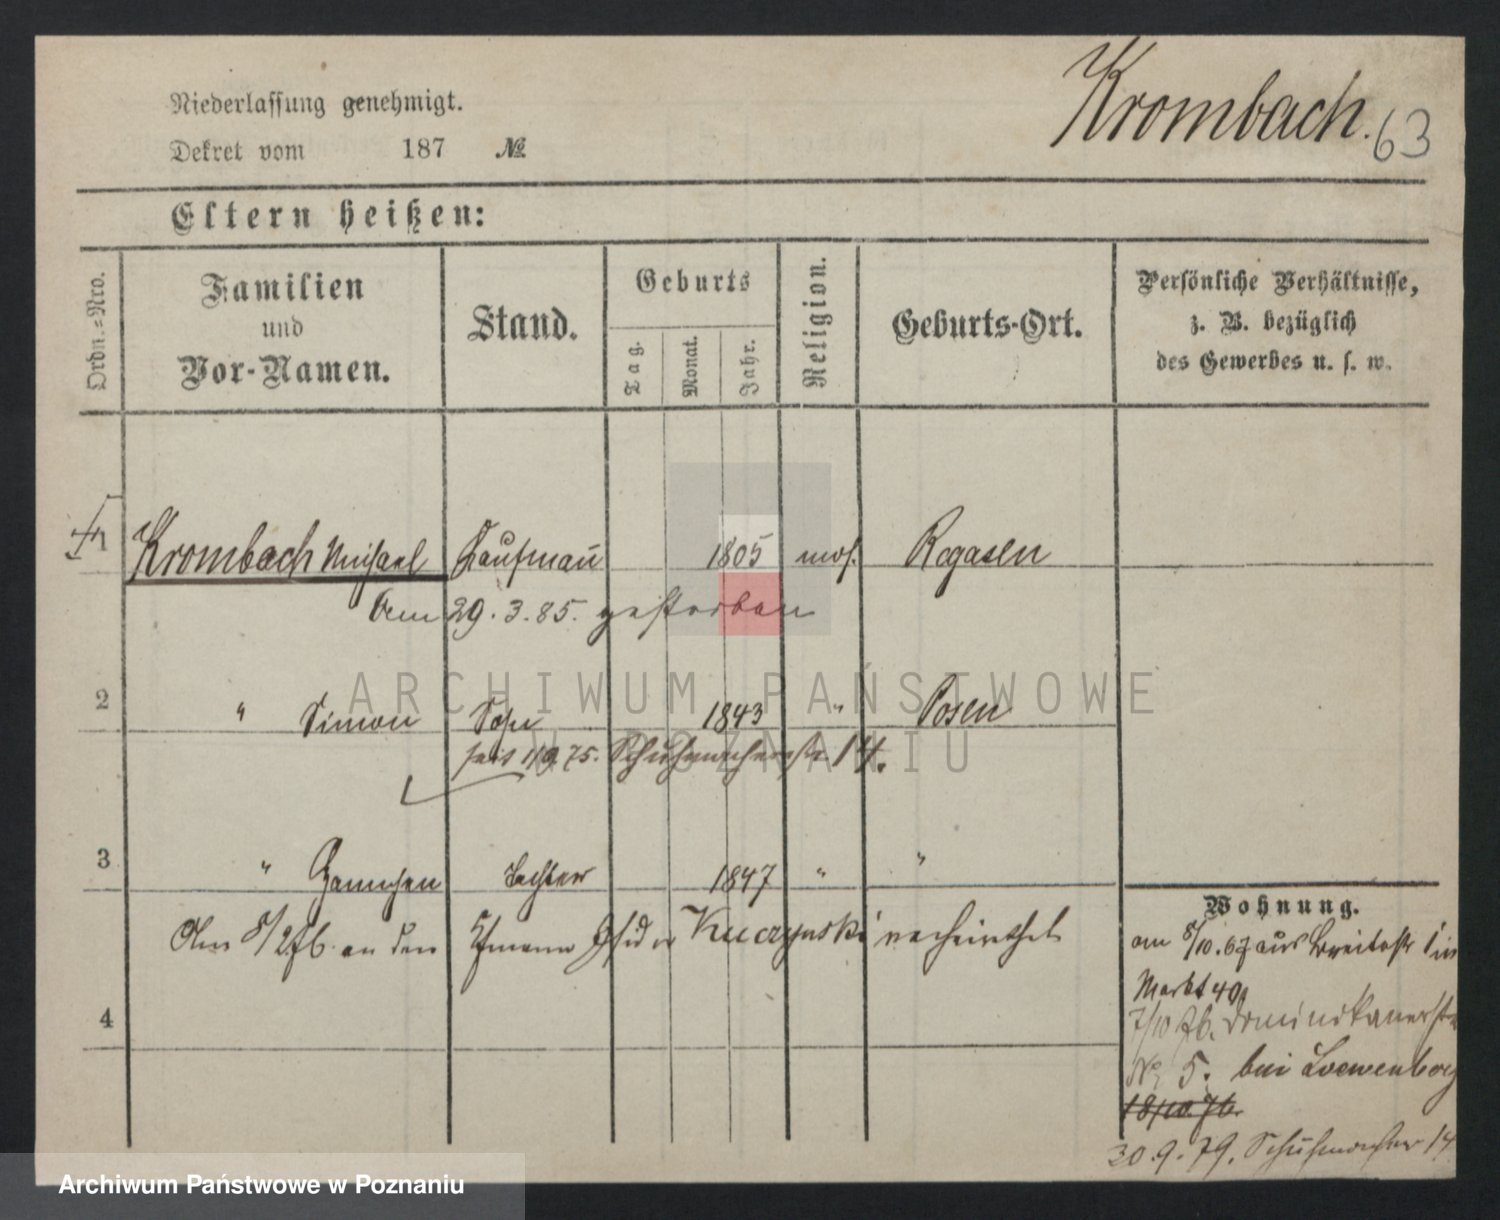 Krombach. 63
Niederlassung genehmigt.
Dekret vom 187 №
Eltern heißen:
Ordn.=Nro.
Familien
und
Vor-Namen.
Stand.
Geburts
Tag.
Monat.
Jahr.
Religion.
Geburts-Ort.
Persönliche Verhältnisse,
z. B. bezüglich
des Gewerbes u. s. w.
1 Krombach Michael Kaufmañ 1805 mos. Rogasen
Am 29.3.85. gestorben
2 " Simon Sohn 1843 " Posen
seit 1/9.75. Schuhmacherstr. 14.
3 " Hannchen Tochter 1847 " "
Am 8/2 76. an den Kfmann Isidor Kuczynski verheirathet
4
Wohnung.
am 8/10.67 aus Breitestr 1 in
Markt 40
7/10 76. Dominikanerstr
№ 5. bei Loewenberg
18/10.76.
30.9.79. Schuhmacher 14
ARCHIWUM PAŃSTWOWE
W POZNANIU
Archiwum Państwowe w Poznaniu